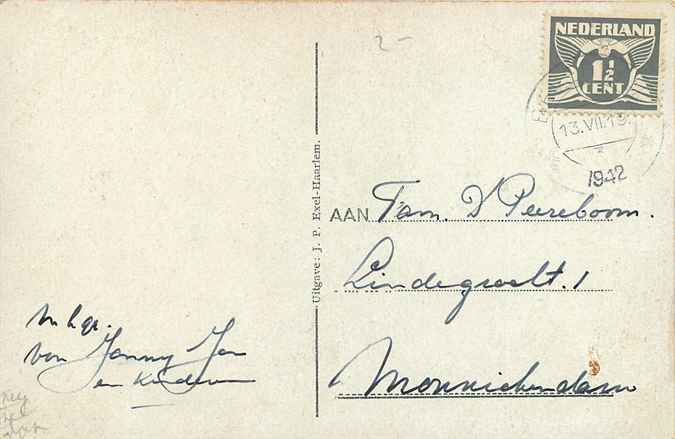 2-
NEDERLAND
1½
CENT
13.VII.19
1942
Uitgave: J. P. Exel-Haarlem.
AAN Fam. D Peereboom.
Lindegracht. 1
Monnickendam
m h gr.
van Janny Jan
en Kinderen